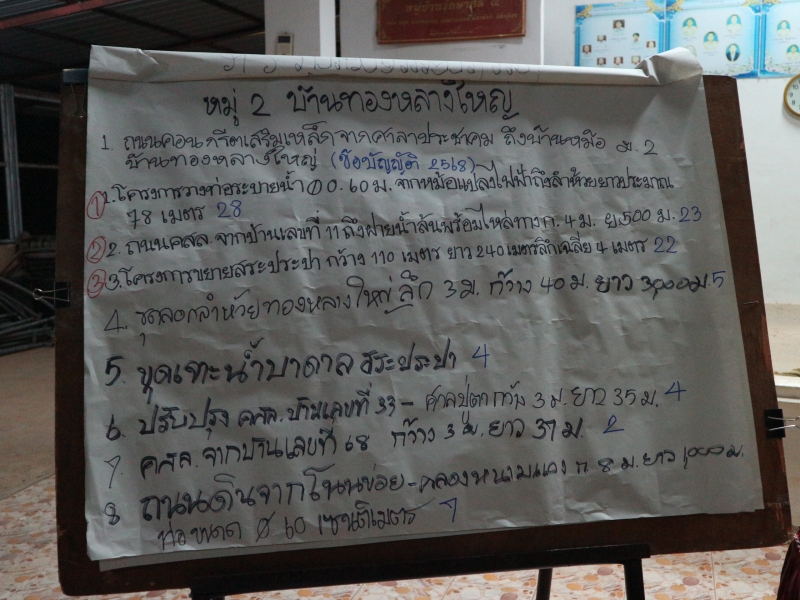 หมู่ 2 บ้านทองหลางใหญ่
1. ถนนคอนกรีตเสริมเหล็กจากศาลาประชาคม ถึงบ้านหมือ ม.2
บ้านทองหลางใหญ่ (ข้อบัญญัติ 2568)
① 1. โครงการวางท่อระบายน้ำ Ø 0.60 ม. จากหม้อแปลงไฟฟ้าถึงลำห้วยยาวประมาณ
78 เมตร 28
② 2. ถนนคสล. จากบ้านเลขที่ 11 ถึงฝายน้ำล้นพร้อมไหล่ทาง ก. 4 ม. ย. 500 ม. 23
③ 3. โครงการขยายสระประปา กว้าง 110 เมตร ยาว 240 เมตรลึกเฉลี่ย 4 เมตร 22
4. ขุดลอกลำห้วยทองหลางใหญ่ ลึก 3 ม. กว้าง 40 ม. ยาว 3,000 ม. 5
5. ขุดเจาะน้ำบาดาล สระประปา 4
6 ปรับปรุง คสล. บ้านเลขที่ 33 - ศาลปู่ตา กว้าง 3 ม. ยาว 35 ม. 4
7. คสล. จากบ้านเลขที่ 68 กว้าง 3 ม. ยาว 37 ม. 2
8 ถนนดินจากโนนข่อย - คลองหนามแดง ก 8 ม. ยาว 1,000 ม.
ท่อขนาด Ø 60 เซนติเมตร 7